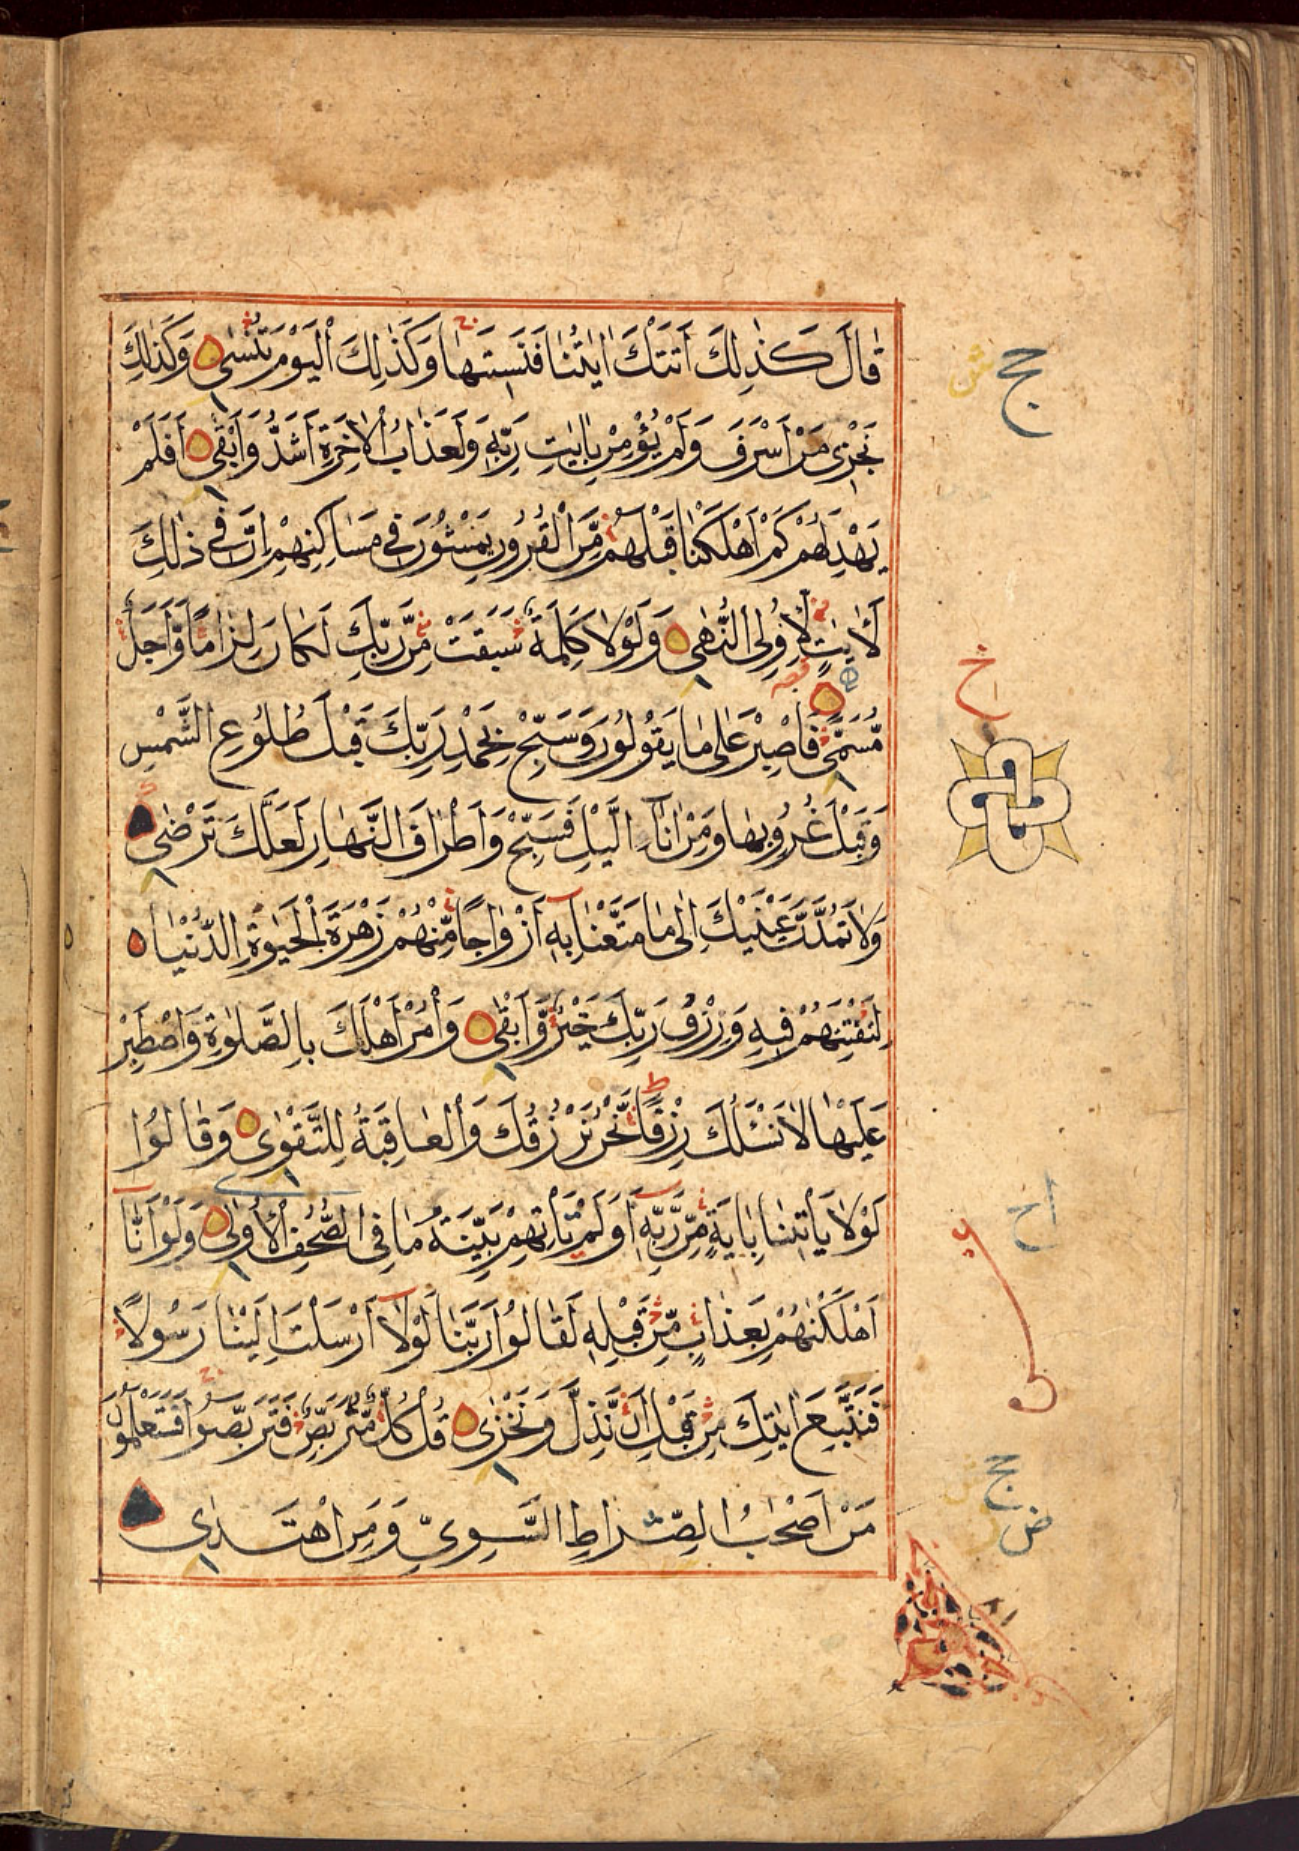 قَالَ كَذٰلِكَ اَتَتْكَ اٰيٰتُنَا فَنَسِيتَهَا وَكَذٰلِكَ الْيَوْمَ تُنْسٰى وَكَذٰلِكَ
نَجْزِى مَنْ اَسْرَفَ وَلَمْ يُؤْمِنْ بِاٰيٰتِ رَبِّهٖ وَلَعَذَابُ الْاٰخِرَةِ اَشَدُّ وَاَبْقٰى اَفَلَمْ
يَهْدِ لَهُمْ كَمْ اَهْلَكْنَا قَبْلَهُمْ مِّنَ الْقُرُونِ يَمْشُونَ فِى مَسَاكِنِهِمْ اِنَّ فِى ذٰلِكَ
لَاٰيٰتٍ لِّاُولِى النُّهٰى وَلَوْلَا كَلِمَةٌ سَبَقَتْ مِنْ رَّبِّكَ لَكَانَ لِزَامًا وَّاَجَلٌ
مُّسَمًّى فَاصْبِرْ عَلٰى مَا يَقُولُونَ وَسَبِّحْ بِحَمْدِ رَبِّكَ قَبْلَ طُلُوعِ الشَّمْسِ
وَقَبْلَ غُرُوبِهَا وَمِنْ اٰنَآءِ الَّيْلِ فَسَبِّحْ وَاَطْرَافَ النَّهَارِ لَعَلَّكَ تَرْضٰى
وَلَا تَمُدَّنَّ عَيْنَيْكَ اِلٰى مَا مَتَّعْنَا بِهٖ اَزْوَاجًا مِّنْهُمْ زَهْرَةَ الْحَيٰوةِ الدُّنْيَا
لِنَفْتِنَهُمْ فِيهِ وَرِزْقُ رَبِّكَ خَيْرٌ وَّاَبْقٰى وَأْمُرْ اَهْلَكَ بِالصَّلٰوةِ وَاصْطَبِرْ
عَلَيْهَا لَا نَسْئَلُكَ رِزْقًا نَّحْنُ نَرْزُقُكَ وَالْعَاقِبَةُ لِلتَّقْوٰى وَقَالُوا
لَوْلَا يَأْتِينَا بِاٰيَةٍ مِّنْ رَّبِّهٖ اَوَلَمْ تَأْتِهِمْ بَيِّنَةُ مَا فِى الصُّحُفِ الْاُولٰى وَلَوْ اَنَّا
اَهْلَكْنٰهُمْ بِعَذَابٍ مِّنْ قَبْلِهٖ لَقَالُوا رَبَّنَا لَوْلَا اَرْسَلْتَ اِلَيْنَا رَسُولًا
فَنَتَّبِعَ اٰيٰتِكَ مِنْ قَبْلِ اَنْ نَّذِلَّ وَنَخْزٰى قُلْ كُلٌّ مُّتَرَبِّصٌ فَتَرَبَّصُوا فَسَتَعْلَمُونَ
مَنْ اَصْحٰبُ الصِّرَاطِ السَّوِىِّ وَمَنِ اهْتَدٰى